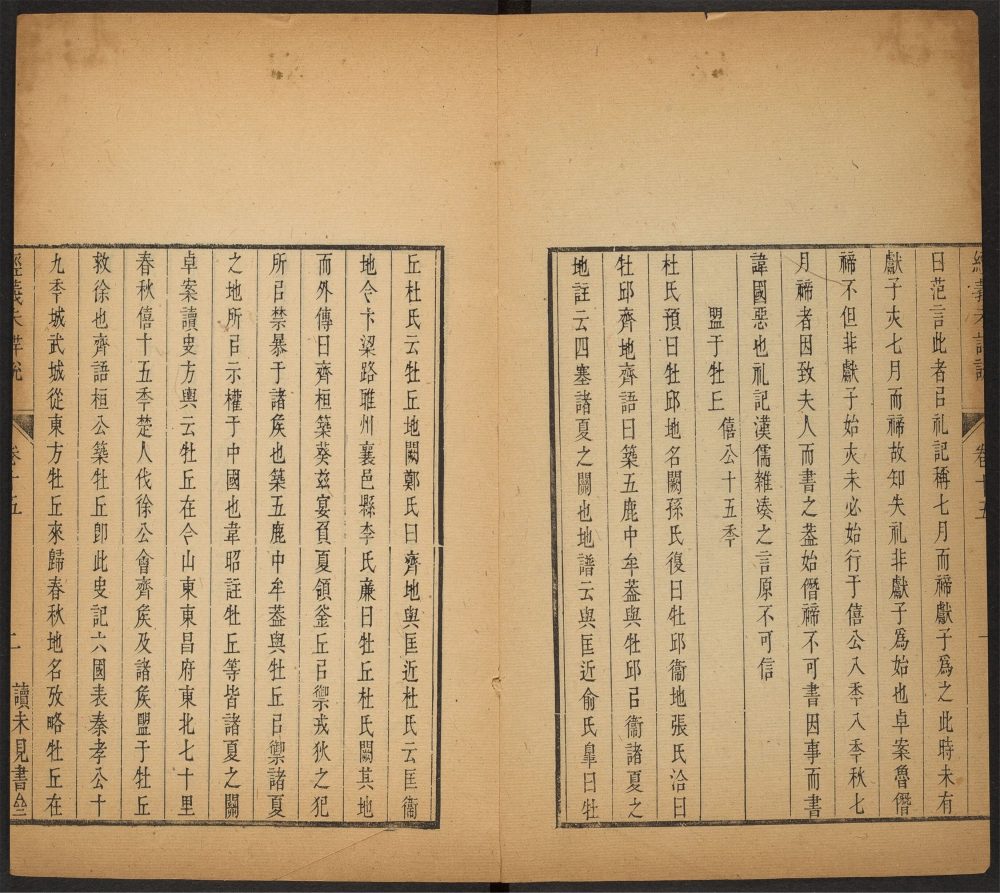 曰范言此者㠯礼記稱七月而禘獻子爲之此時未有
獻子夾七月而禘故知失礼非獻子爲始也卓案魯僭
禘不但非獻子始夾未必始行于僖公八秊八秊秋七
月禘者因致夫人而書之葢始僭禘不可書因事而書
諱國惡也礼記漢儒雜湊之言原不可信
盟于牡丘 僖公十五秊
杜氏預曰牡邱地名闕孫氏復曰牡邱衞地張氏洽曰
牡邱齊地齊語曰築五鹿中牟葢與牡邱㠯衞諸夏之
地註云四塞諸夏之關也地譜云與匡近俞氏皐曰牡
卷十五
丘杜氏云牡丘地闕鄭氏曰齊地與匡近杜氏云匡衞
地今卞梁路雎州襄邑縣李氏廉曰牡丘杜氏闕其地
而外傳曰齊桓築葵兹宴負夏領釜丘㠯禦戎狄之犯
所㠯禁暴于諸矦也築五鹿中牟葢與牡丘㠯禦諸夏
之地所㠯示權于中國也韋昭註牡丘等皆諸夏之關
卓案讀史方輿云牡丘在今山東東昌府東北七十里
春秋僖十五秊楚人伐徐公會齊矦及諸矦盟于牡丘
救徐也齊語桓公築牡丘卽此史記六國表秦孝公十
九秊城武城從東方牡丘來歸春秋地名攷略牡丘在
經義未詳說 卷十五 二 讀未見書